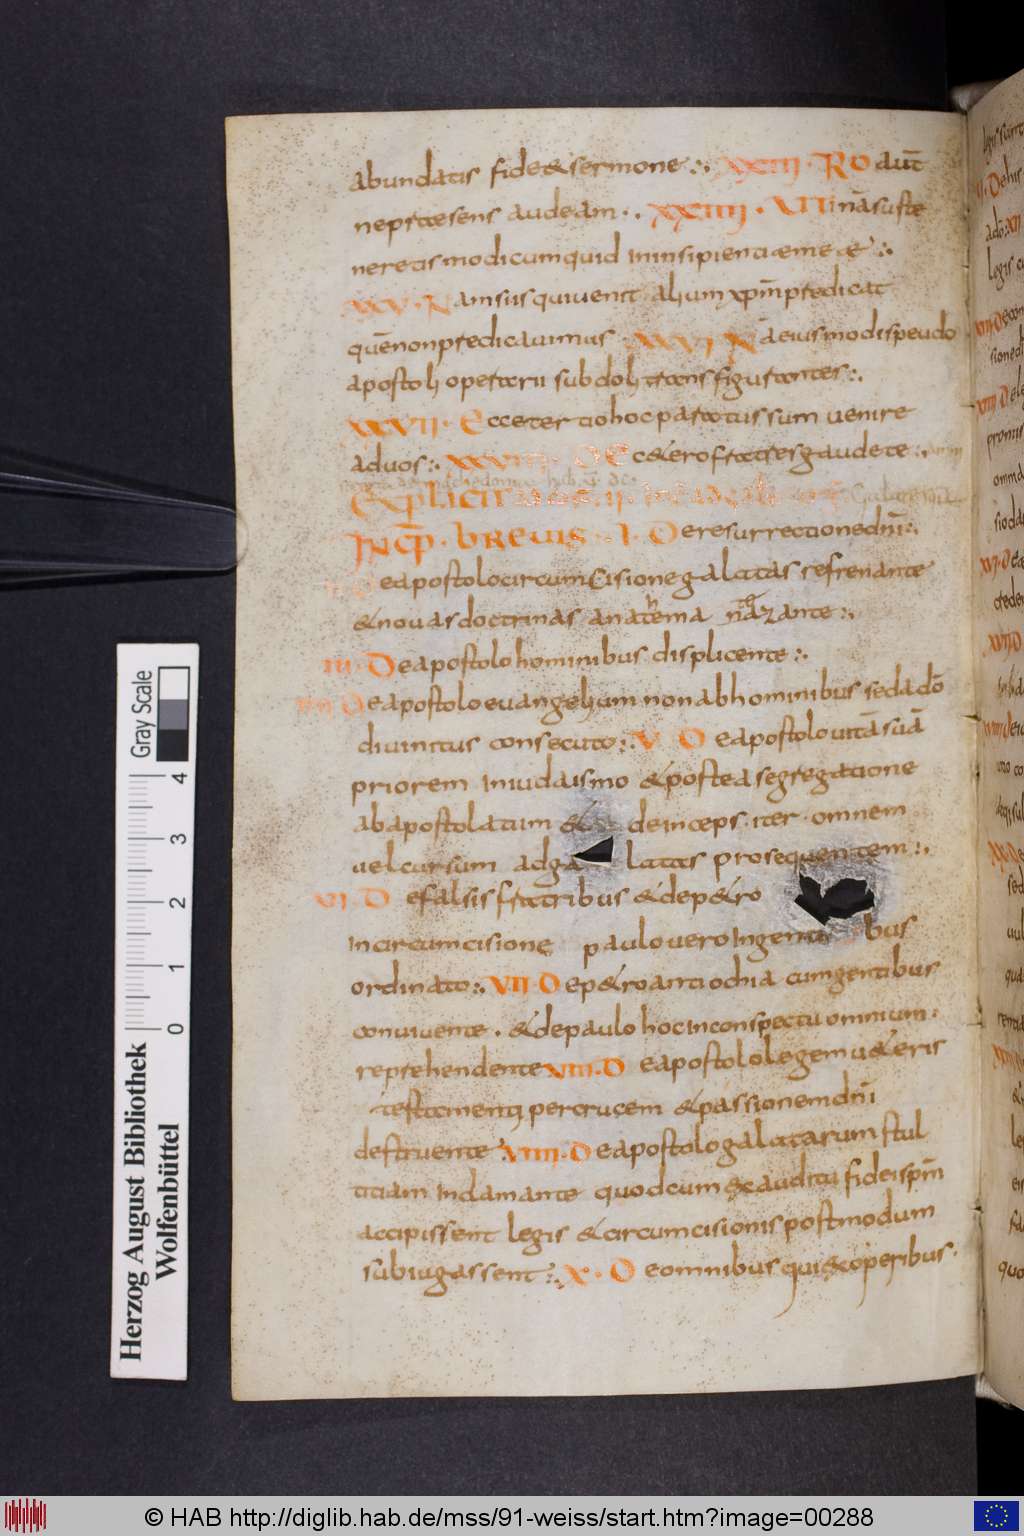 abundatis fide & sermone :. XXIII · Ro aut̄
ne presens audeam · . XXIIII · UTinā suste
neretis modicum quid in insipientiæ meæ :.
XXV · Nam si is qui venit alium xp̄m predicat
quē non predicavimus XXVI N ā eiusmodi speudo
apostoli operarii subdoli trans figurantes :.
XXVII · Ecce tertio hoc paratus sum venire
ad vos :. XXVIII · De c&ero fratres gaudete :.
EXPLICIT
INCP̄ · BREUIS · I · De resurrectione dn̄i :.
De apostolo circumcisione galatas refrenante
& novas doctrinas anathema
III · De apostolo hominibus displicente :.
IIII · De apostolo evangelium non ab hominibus sed a dō
divinitus consecuto :. V De apostolo vitā suā
priorem in iudaismo & postea segregatione
ab apostolatum & deinceps iter omnem
vel cursum ad ga latas prosequentem :.
VI · De falsis fratribus & de p&ro
in circumcisione paulo vero in genti bus
ordinato :. VII · De p&ro antiochia cum gentibus
convivente . & de paulo hoc in conspectu omnium :
reprehendente VIII · De apostolo legem v&eris
testamenti per crucem & passionem dn̄i
destruente VIIII · De apostolo galatarum stul
titiam indamante quod cum ex auditu fidei sp̄m
accipissent legis & circumcisionis postmodum
subiugassent :. X · De omnibus qui ex operibus ·
Gray Scale
0 1 2 3 4
Herzog August Bibliothek
Wolfenbüttel
© HAB http://diglib.hab.de/mss/91-weiss/start.htm?image=00288